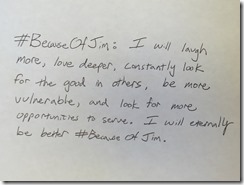 #BecauseOfJim: I will laugh
more, love deeper, constantly look
for the good in others, be more
vulnerable, and look for more
opportunities to serve. I will eternally
be better #Because Of Jim.